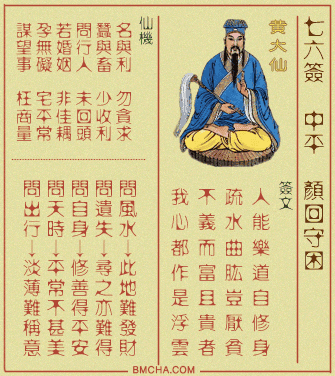 七六簽 中平 顏回守困
黃大仙
簽文
人能樂道自修身
疏水曲肱豈厭貧
不義而富且貴者
我心都作是浮雲
仙機
名與利 勿貪求
蠶與畜 少收利
問行人 未回頭
若婚姻 非佳耦
孕無礙 宅平常
謀望事 枉商量
問風水→此地難發財
問遺失→尋之亦難得
問自身→修善得平安
問天時→平常不甚美
問出行→淡薄難稱意
BMCHA.COM